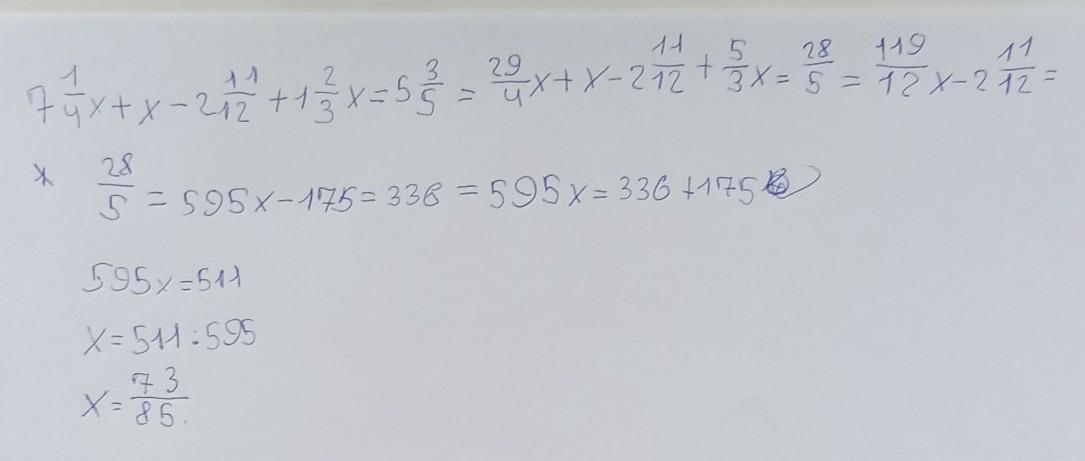 7 1/4 x + x - 2 11/12 + 1 2/3 x = 5 3/5 = 29/4 x + x - 2 11/12 + 5/3 x = 28/5 = 119/12 x - 2 11/12 =
* 28/5 = 595x - 175 = 336 = 595x = 336 + 175
595x = 511
x = 511 : 595
x = 73/85.